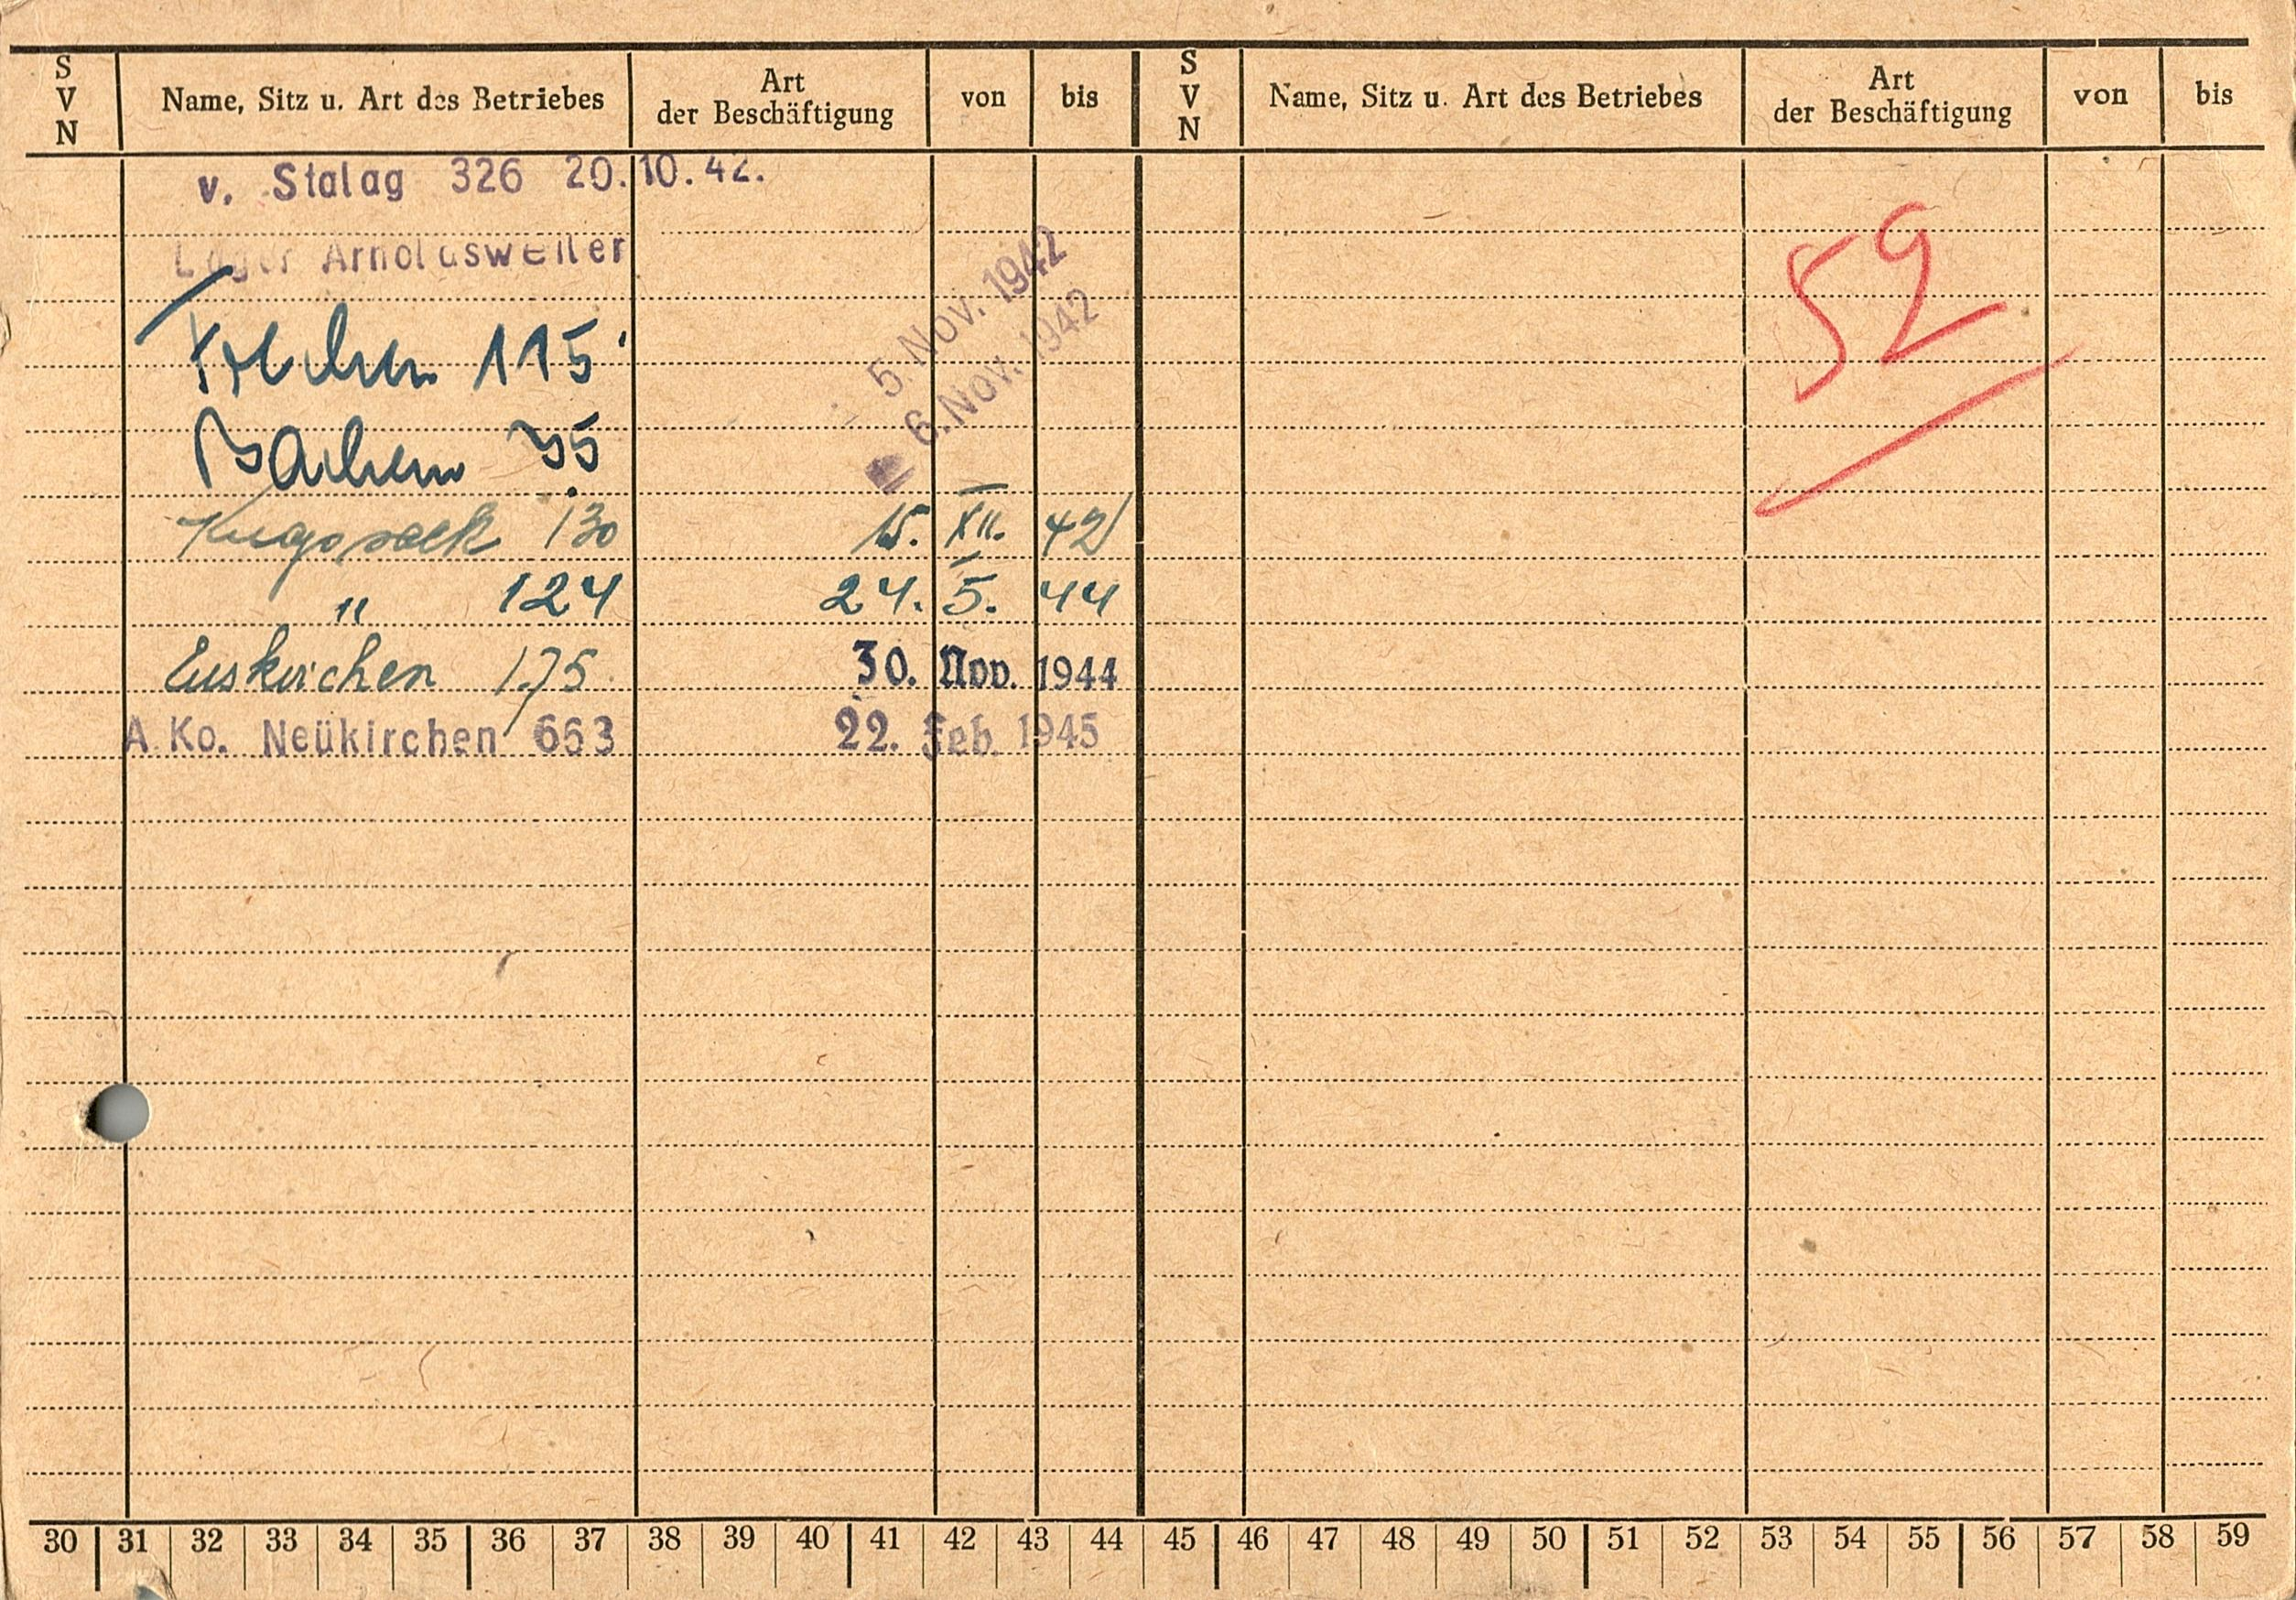 S V N Name, Sitz u. Art des Betriebes Art der Beschäftigung von bis S V N Name, Sitz u. Art des Betriebes Art der Beschäftigung von bis
v. Stalag 326 20.10.42.
Lager Arnoldsweiler
Frechen 115 5. Nov. 1942
Bachem 35 6. Nov. 1942
130 15. XII. 42
" 124 24. 5. 44
Euskirchen 175 30. Nov. 1944
A.Ko. Neükirchen 663 22. Feb. 1945
52
30 31 32 33 34 35 36 37 38 39 40 41 42 43 44 45 46 47 48 49 50 51 52 53 54 55 56 57 58 59